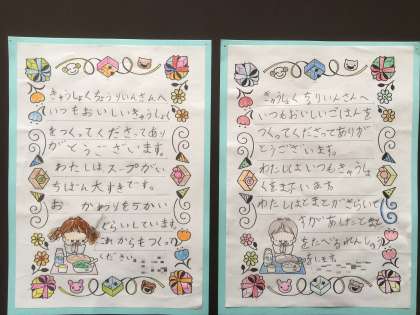 きゅうしょくちょうりいんさんへ
いつもおいしいきゅうしょく
をつくってくださってあり
がとうございます。
わたしはスープがい
ちばん大すきです。
お かわりを5かい
ぐらいしています。
これからもつくって
ください。
きゅうしょくちょうりいんさんへ
いつもおいしいごはんを
つくってくださってありが
とうございます。
わたしはいつもきゅうしょ
くを
わたしはとまとがきらいで
をたべる